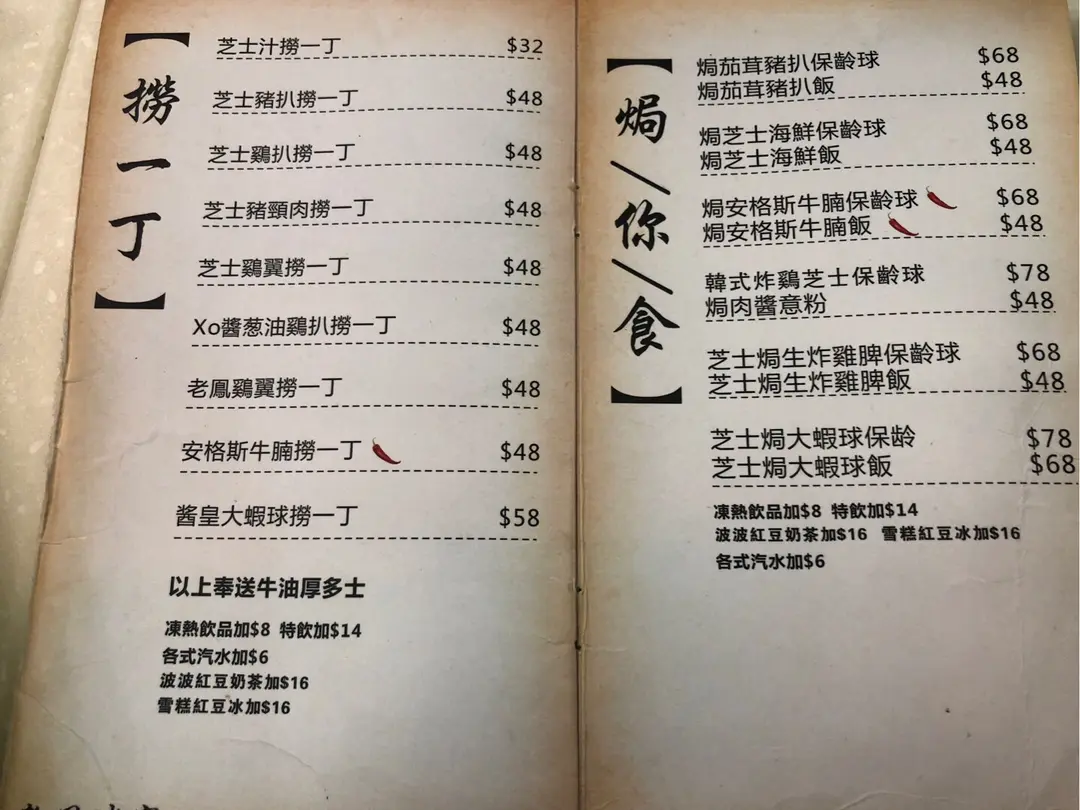 【撈一丁】
芝士汁撈一丁 $32
芝士豬扒撈一丁 $48
芝士鷄扒撈一丁 $48
芝士豬頸肉撈一丁 $48
芝士鷄翼撈一丁 $48
Xo醬葱油鷄扒撈一丁 $48
老鳳鷄翼撈一丁 $48
安格斯牛腩撈一丁 $48
酱皇大蝦球撈一丁 $58
以上奉送牛油厚多士
凍熱飲品加$8 特飲加$14
各式汽水加$6
波波紅豆奶茶加$16
雪糕紅豆冰加$16
【焗/你/食】
焗茄茸豬扒保齡球 $68
焗茄茸豬扒飯 $48
焗芝士海鮮保齡球 $68
焗芝士海鮮飯 $48
焗安格斯牛腩保齡球 $68
焗安格斯牛腩飯 $48
韓式炸鷄芝士保齡球 $78
焗肉醬意粉 $48
芝士焗生炸雞脾保齡球 $68
芝士焗生炸雞脾飯 $48
芝士焗大蝦球保龄 $78
芝士焗大蝦球飯 $68
凍熱飲品加$8 特飲加$14
波波紅豆奶茶加$16 雪糕紅豆冰加$16
各式汽水加$6